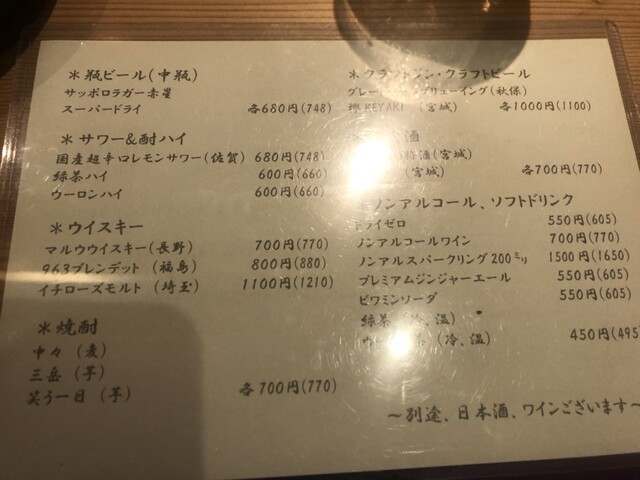 ＊瓶ビール(中瓶)
サッポロラガー赤星
スーパードライ 各680円(748)
＊サワー&酎ハイ
国産超辛口レモンサワー(佐賀) 680円(748)
緑茶ハイ 600円(660)
ウーロンハイ 600円(660)
＊ウイスキー
マルウウイスキー(長野) 700円(770)
963ブレンデット (福島) 800円(880)
イチローズモルト (埼玉) 1100円(1210)
＊焼酎
中々 (麦)
三岳 (芋)
笑う一日 (芋) 各700円(770)
＊クラフトジン・クラフトビール
グレー ブリューイング(秋保)
欅KEYAKI (宮城) 各1000円(1100)
酒
酒(宮城)
(宮城) 各700円(770)
＊ノンアルコール、ソフトドリンク
ドライゼロ 550円(605)
ノンアルコールワイン 700円(770)
ノンアルスパークリング200ミリ 1500円(1650)
プレミアムジンジャーエール 550円(605)
ビワミンソーダ 550円(605)
緑茶 (冷、温)
茶 (冷、温) 450円(495
〜別途、日本酒、ワインございます〜